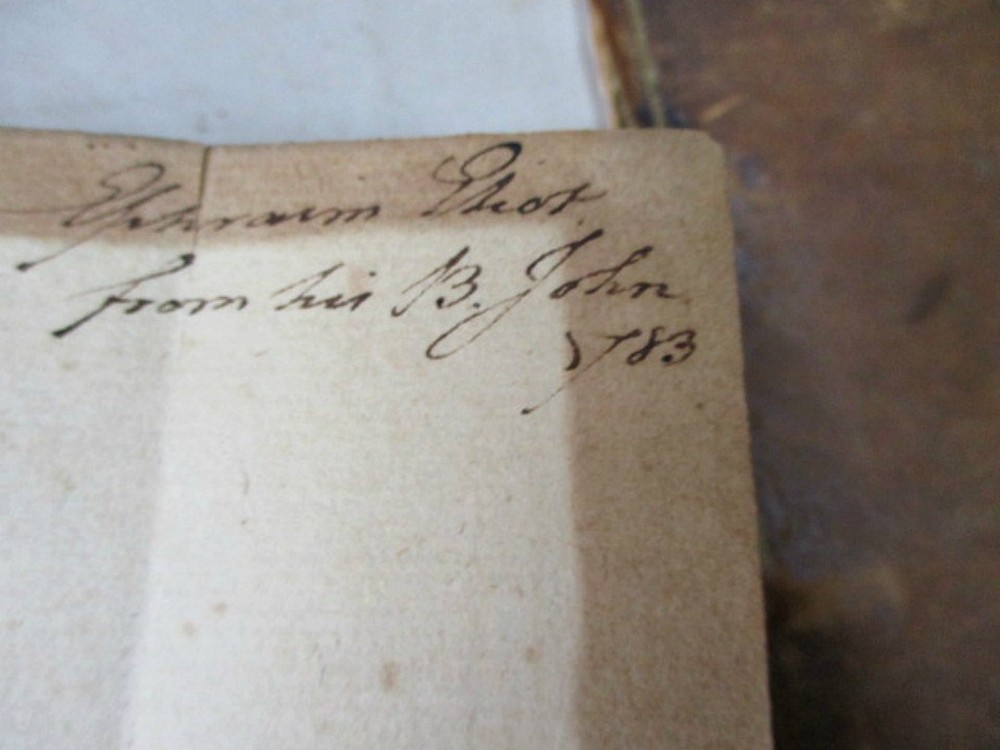 Ephraim Eliot
from his B. John
1783